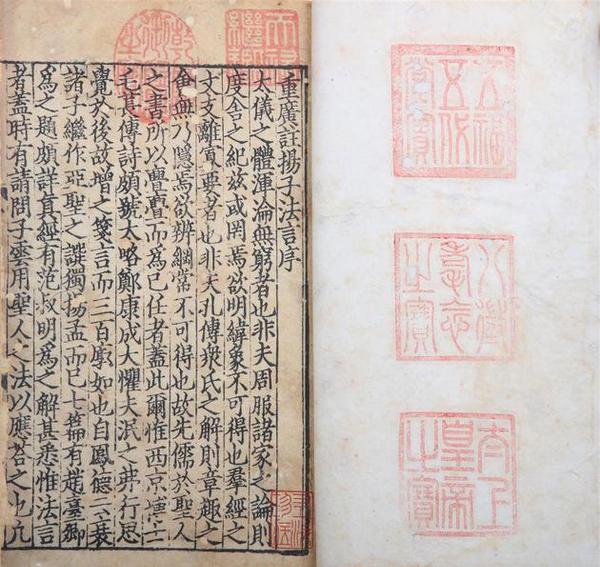 重廣註揚子法言序
大儀之體渾淪無窮者也非夫周服諸家之論則
度舍之紀茲或罔焉欲明緯象不可得也羣經之
文支離寔要者也非夫孔傳氏之解則章趣之
會無乃隱焉欲辨綱常不可得也故先儒於聖人
之書所以亹亹而為己任者蓋此爾惟西京
毛萇傳詩頗號大略鄭康成大懼夫泯之弗行思
覺其後故增之箋言而三百廓如也自鳳德云衰
諸子繼作亞聖之譔獨揚孟而已七篇有趙臺卿
為之題頗詳真經有范叔明為之解甚悉惟法言
者蓋時有請問子雲用聖人之法以應答之也凢
天祿繼鑑
五福五代堂寶
八徵耄念之寶
太上皇帝之寶